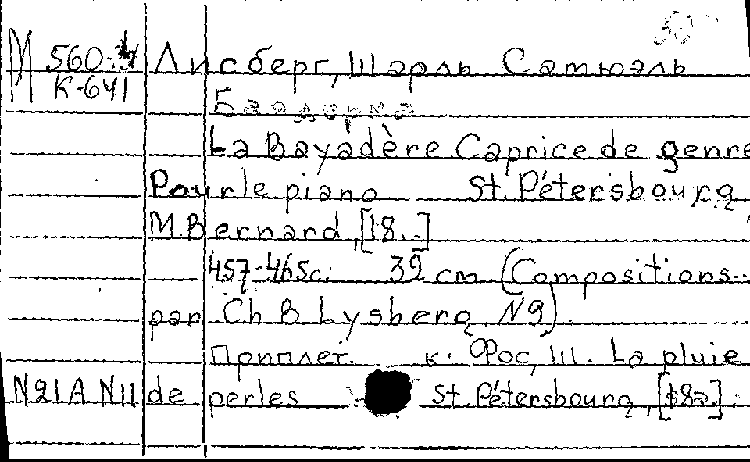 М 560-4 Лисберг, Шарль Самюэль
К-641
Баядерка
La Bayadère Caprice de genre
Pour le piano St. Pétersbourg,
M. Bernard, [18..]
457-465с. 32 cm (Compositions
par Ch B Lysberg N9).
Приплет. к: Фос, Ш. La pluie
N21A N11 de perles St. Pétersbourg, [18..].